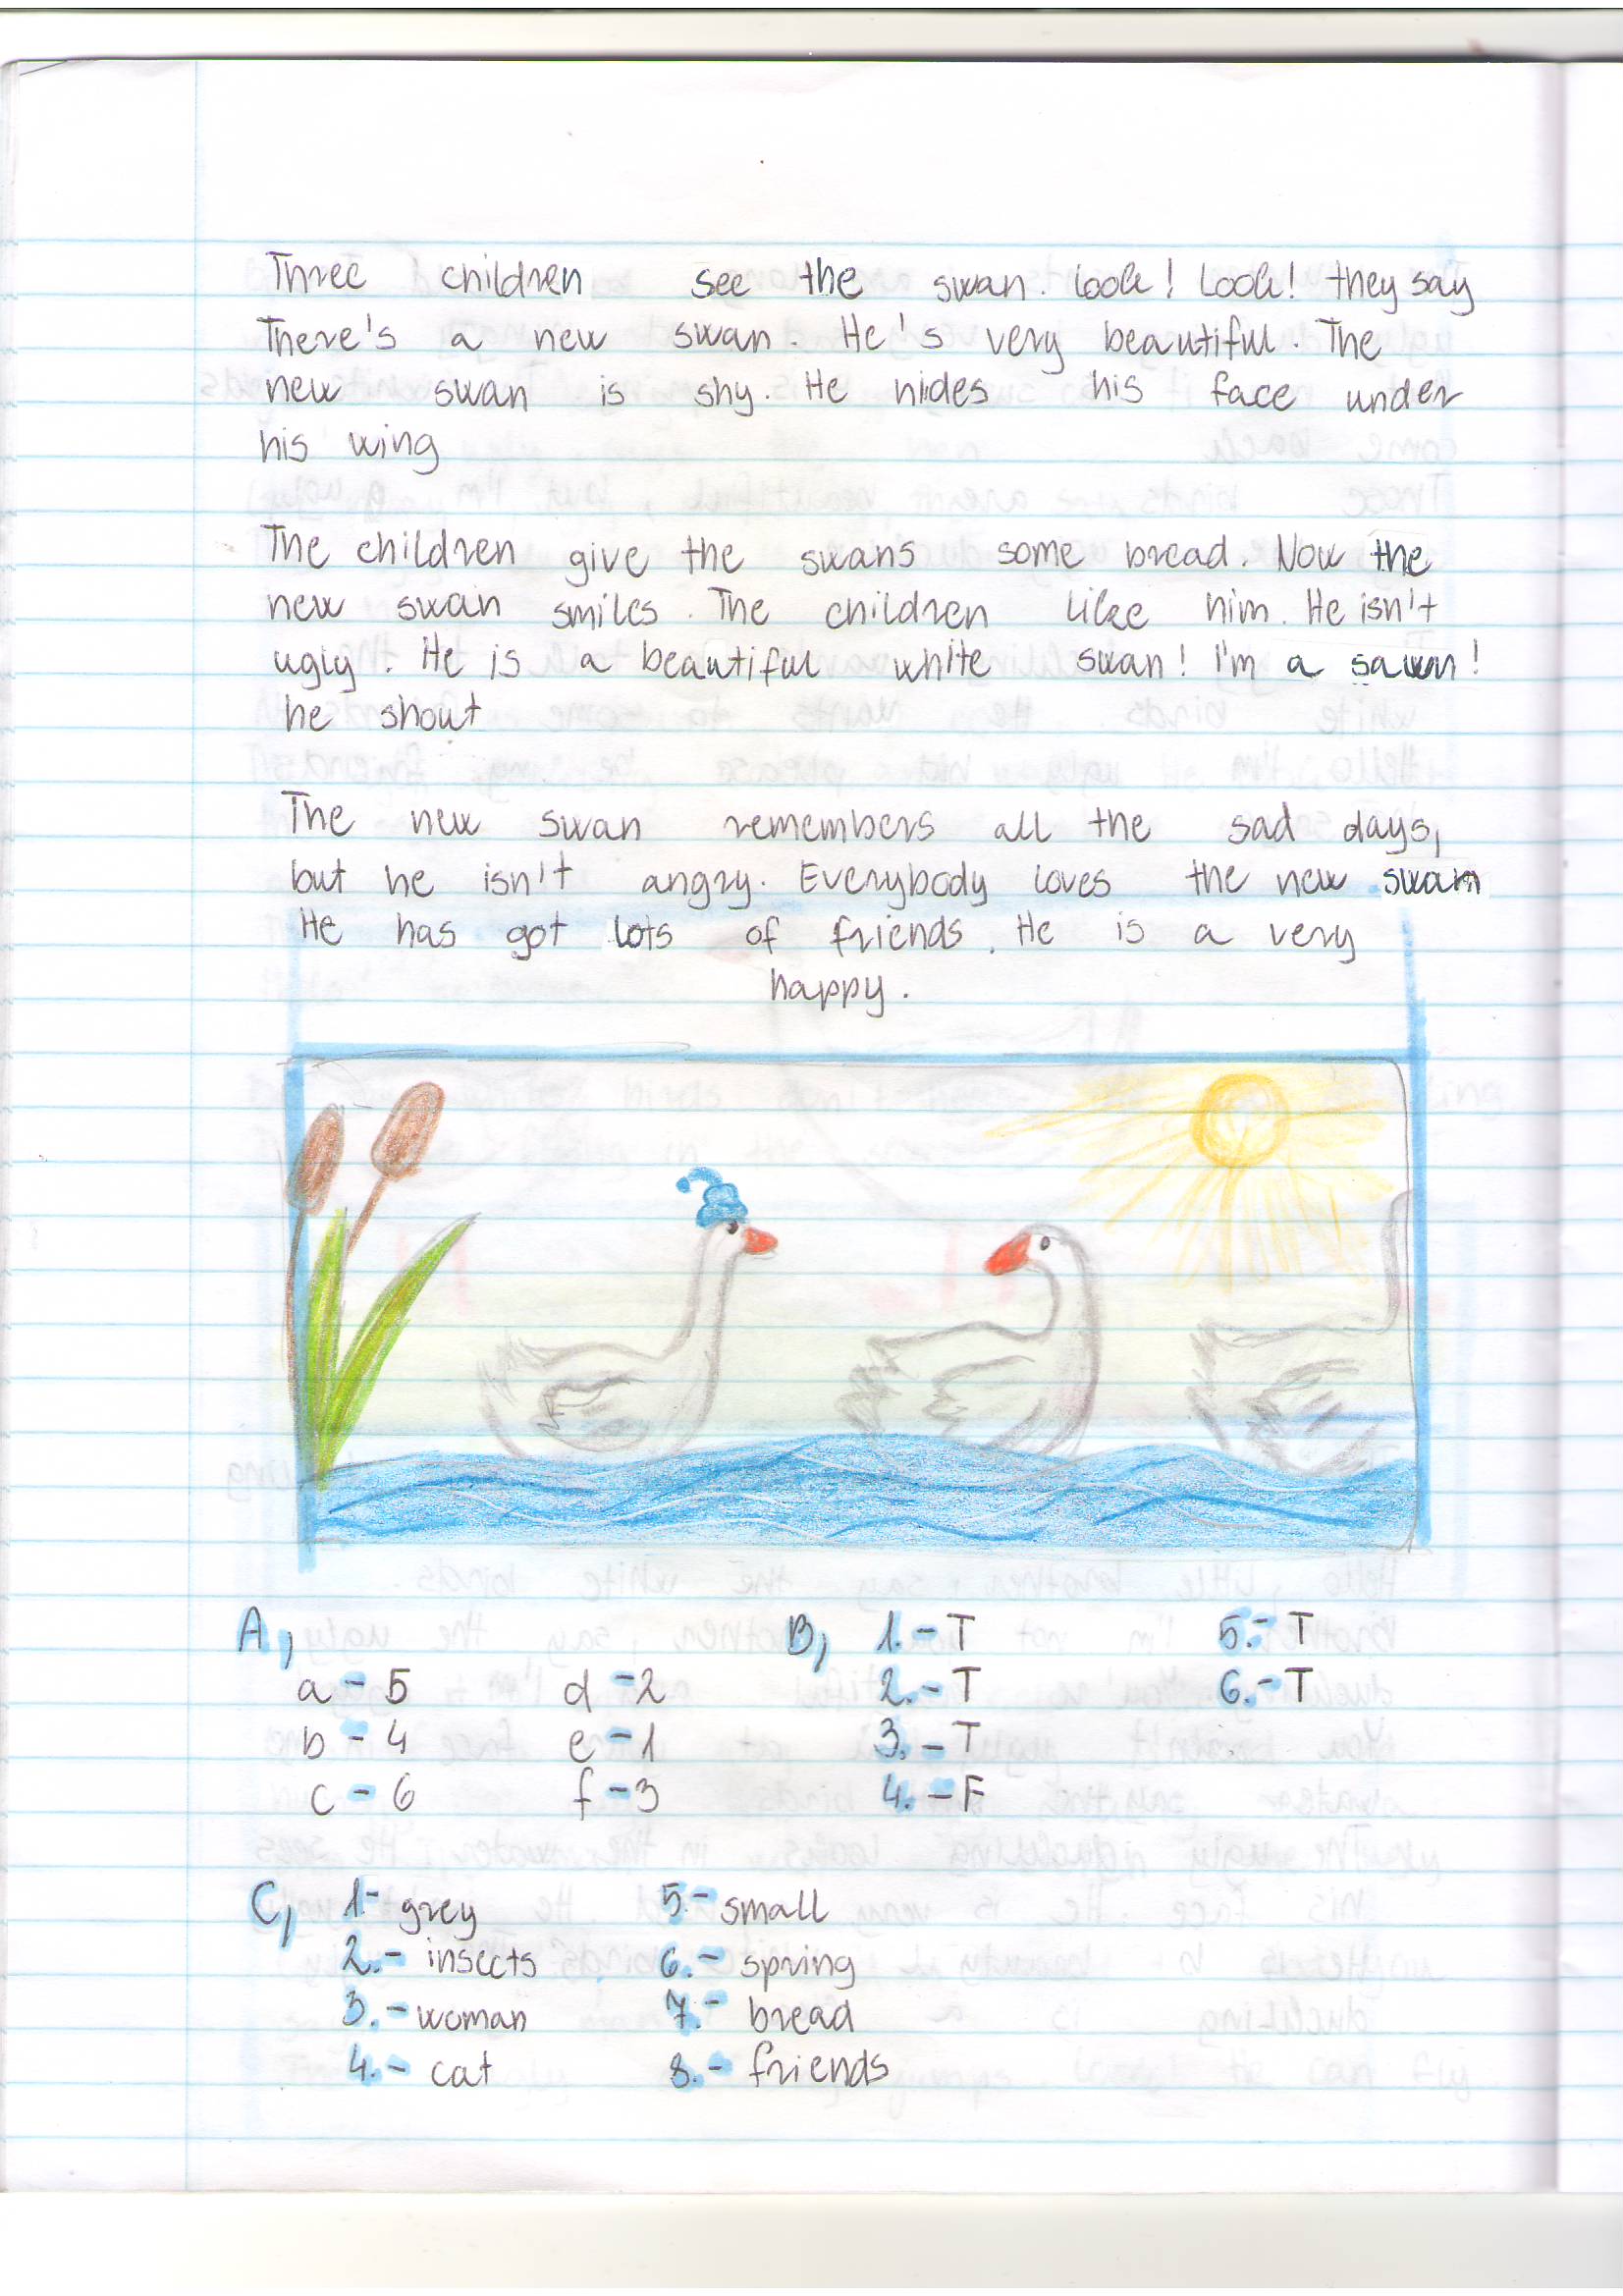 Three children see the swan. Look! Look! they say
There's a new swan. He's very beautiful. The
new swan is shy. He hides his face under
his wing
The children give the swans some bread. Now the
new swan smiles. The children like him. He isn't
ugly. He is a beautiful white swan! I'm a sawn!
he shout
The new swan remembers all the sad days,
but he isn't angry. Everybody loves the new swan
He has got lots of friends. He is a very
happy.
A,
a - 5 d - 2
b - 4 e - 1
c - 6 f - 3
B, 1. - T 5. - T
2. - T 6. - T
3. - T
4. - F
C, 1 - grey 5 - small
2. - insects 6. - spring
3. - woman 7. - bread
4. - cat 8. - friends